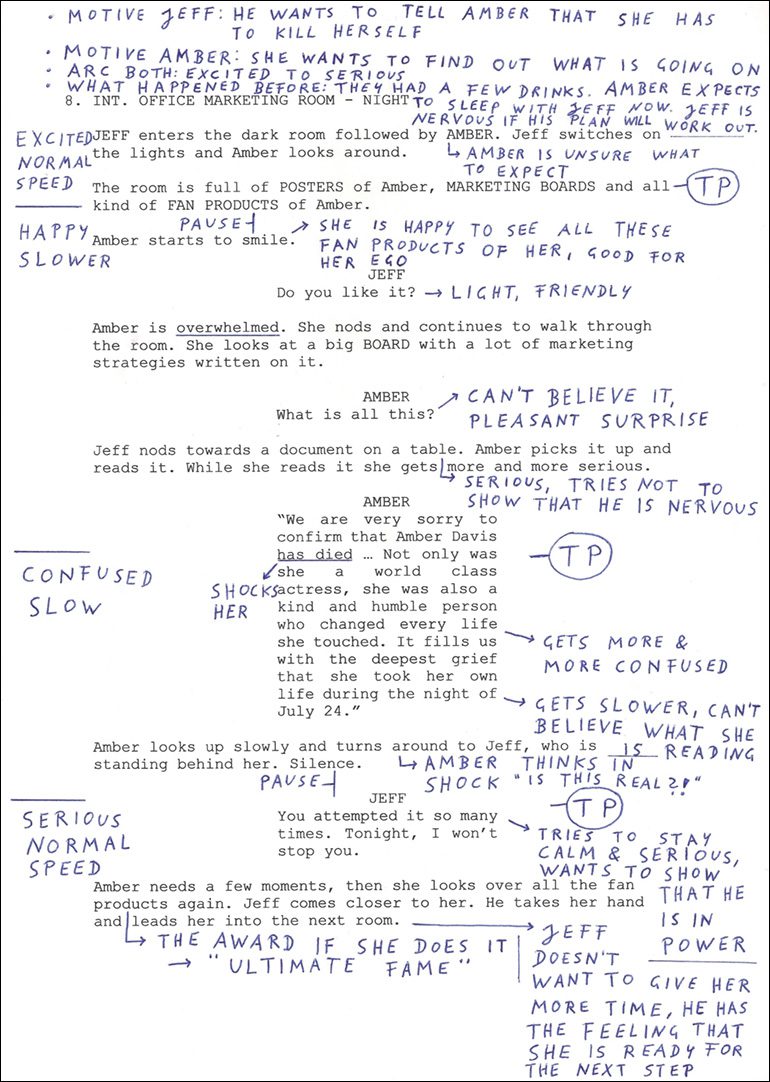 • MOTIVE JEFF: HE WANTS TO TELL AMBER THAT SHE HAS
TO KILL HERSELF
• MOTIVE AMBER: SHE WANTS TO FIND OUT WHAT IS GOING ON
• ARC BOTH: EXCITED TO SERIOUS
• WHAT HAPPENED BEFORE: THEY HAD A FEW DRINKS. AMBER EXPECTS
TO SLEEP WITH JEFF NOW. JEFF IS
NERVOUS IF HIS PLAN WILL WORK OUT.
8. INT. OFFICE MARKETING ROOM – NIGHT
EXCITED
NORMAL
SPEED
JEFF enters the dark room followed by AMBER. Jeff switches on
the lights and Amber looks around.
↳ AMBER IS UNSURE WHAT
TO EXPECT
The room is full of POSTERS of Amber, MARKETING BOARDS and all
kind of FAN PRODUCTS of Amber.
TP
HAPPY
SLOWER
PAUSE
Amber starts to smile.
→ SHE IS HAPPY TO SEE ALL THESE
FAN PRODUCTS OF HER, GOOD FOR
HER EGO
JEFF
Do you like it? → LIGHT, FRIENDLY
Amber is overwhelmed. She nods and continues to walk through
the room. She looks at a big BOARD with a lot of marketing
strategies written on it.
AMBER
What is all this?
→ CAN'T BELIEVE IT,
PLEASANT SURPRISE
Jeff nods towards a document on a table. Amber picks it up and
reads it. While she reads it she gets more and more serious.
↳ SERIOUS, TRIES NOT TO
SHOW THAT HE IS NERVOUS
AMBER
"We are very sorry to
confirm that Amber Davis
has died … Not only was
she a world class
actress, she was also a
kind and humble person
who changed every life
she touched. It fills us
with the deepest grief
that she took her own
life during the night of
July 24."
TP
CONFUSED
SLOW
SHOCKS
HER
→ GETS MORE &
MORE CONFUSED
→ GETS SLOWER, CAN'T
BELIEVE WHAT SHE
IS READING
Amber looks up slowly and turns around to Jeff, who is
standing behind her. Silence.
↳ AMBER THINKS IN
SHOCK "IS THIS REAL?!"
PAUSE
JEFF
You attempted it so many
times. Tonight, I won't
stop you.
TP
SERIOUS
NORMAL
SPEED
→ TRIES TO STAY
CALM & SERIOUS,
WANTS TO SHOW
THAT HE
IS IN
POWER
Amber needs a few moments, then she looks over all the fan
products again. Jeff comes closer to her. He takes her hand
and leads her into the next room.
↳ THE AWARD IF SHE DOES IT
→ "ULTIMATE FAME"
→ JEFF
DOESN'T
WANT TO GIVE HER
MORE TIME, HE HAS
THE FEELING THAT
SHE IS READY FOR
THE NEXT STEP